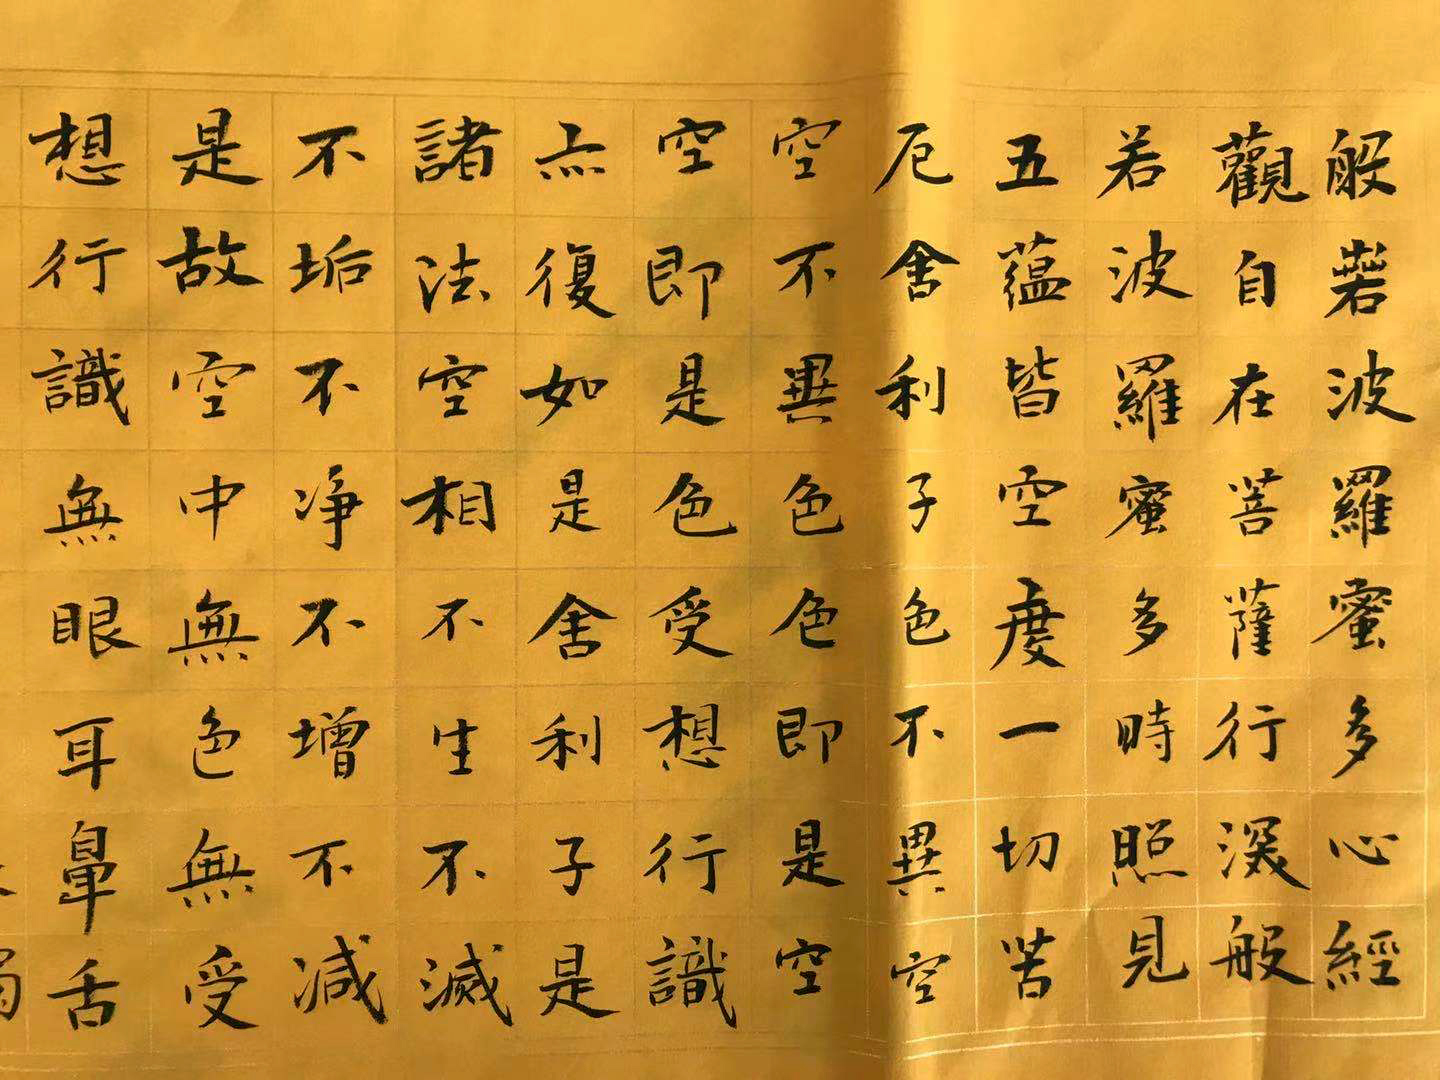 般若波羅蜜多心經
觀自在菩薩行深般
若波羅蜜多時照見
五蘊皆空度一切苦
厄舍利子色不異空
空不異色色即是空
空即是色受想行識
亦復如是舍利子是
諸法空相不生不滅
不垢不净不增不减
是故空中無色無受
想行識無眼耳鼻舌